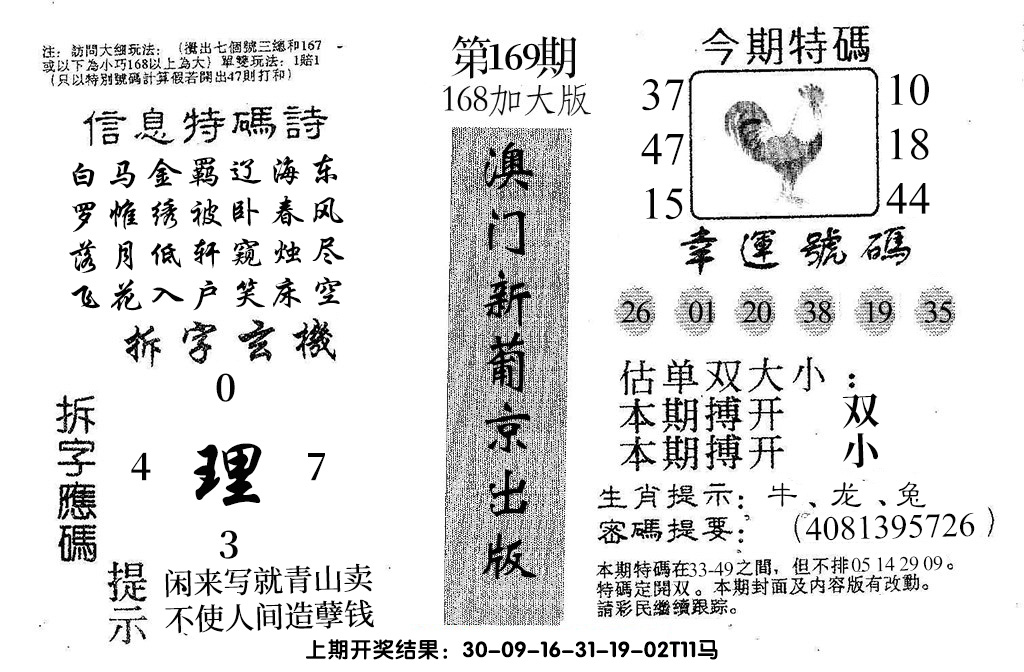 注：訪問大细玩法：（攪出七個號三總和167
或以下為小巧168以上為大）單雙玩法：1賠1
（只以特別號碼計算假若開出47則打和）
信息特碼詩
白马金羁辽海东
罗帷绣被卧春风
落月低轩窥烛尽
飞花入户笑床空
拆字玄機
0
拆字應碼
4 理 7
3
提示
闲来写就青山卖
不使人间造孽钱
第169期
168加大版
澳门新葡京出版
今期特碼
37 10
47 18
15 44
幸運號碼
26 01 20 38 19 35
估单双大小：
本期搏开 双
本期搏开 小
生肖提示：牛、龙、兔
密碼提要：（4081395726）
本期特碼在33-49之間，但不排05 14 29 09。
特碼定開双。本期封面及内容版有改動。
請彩民繼續跟踪。
上期开奖结果：30-09-16-31-19-02T11马